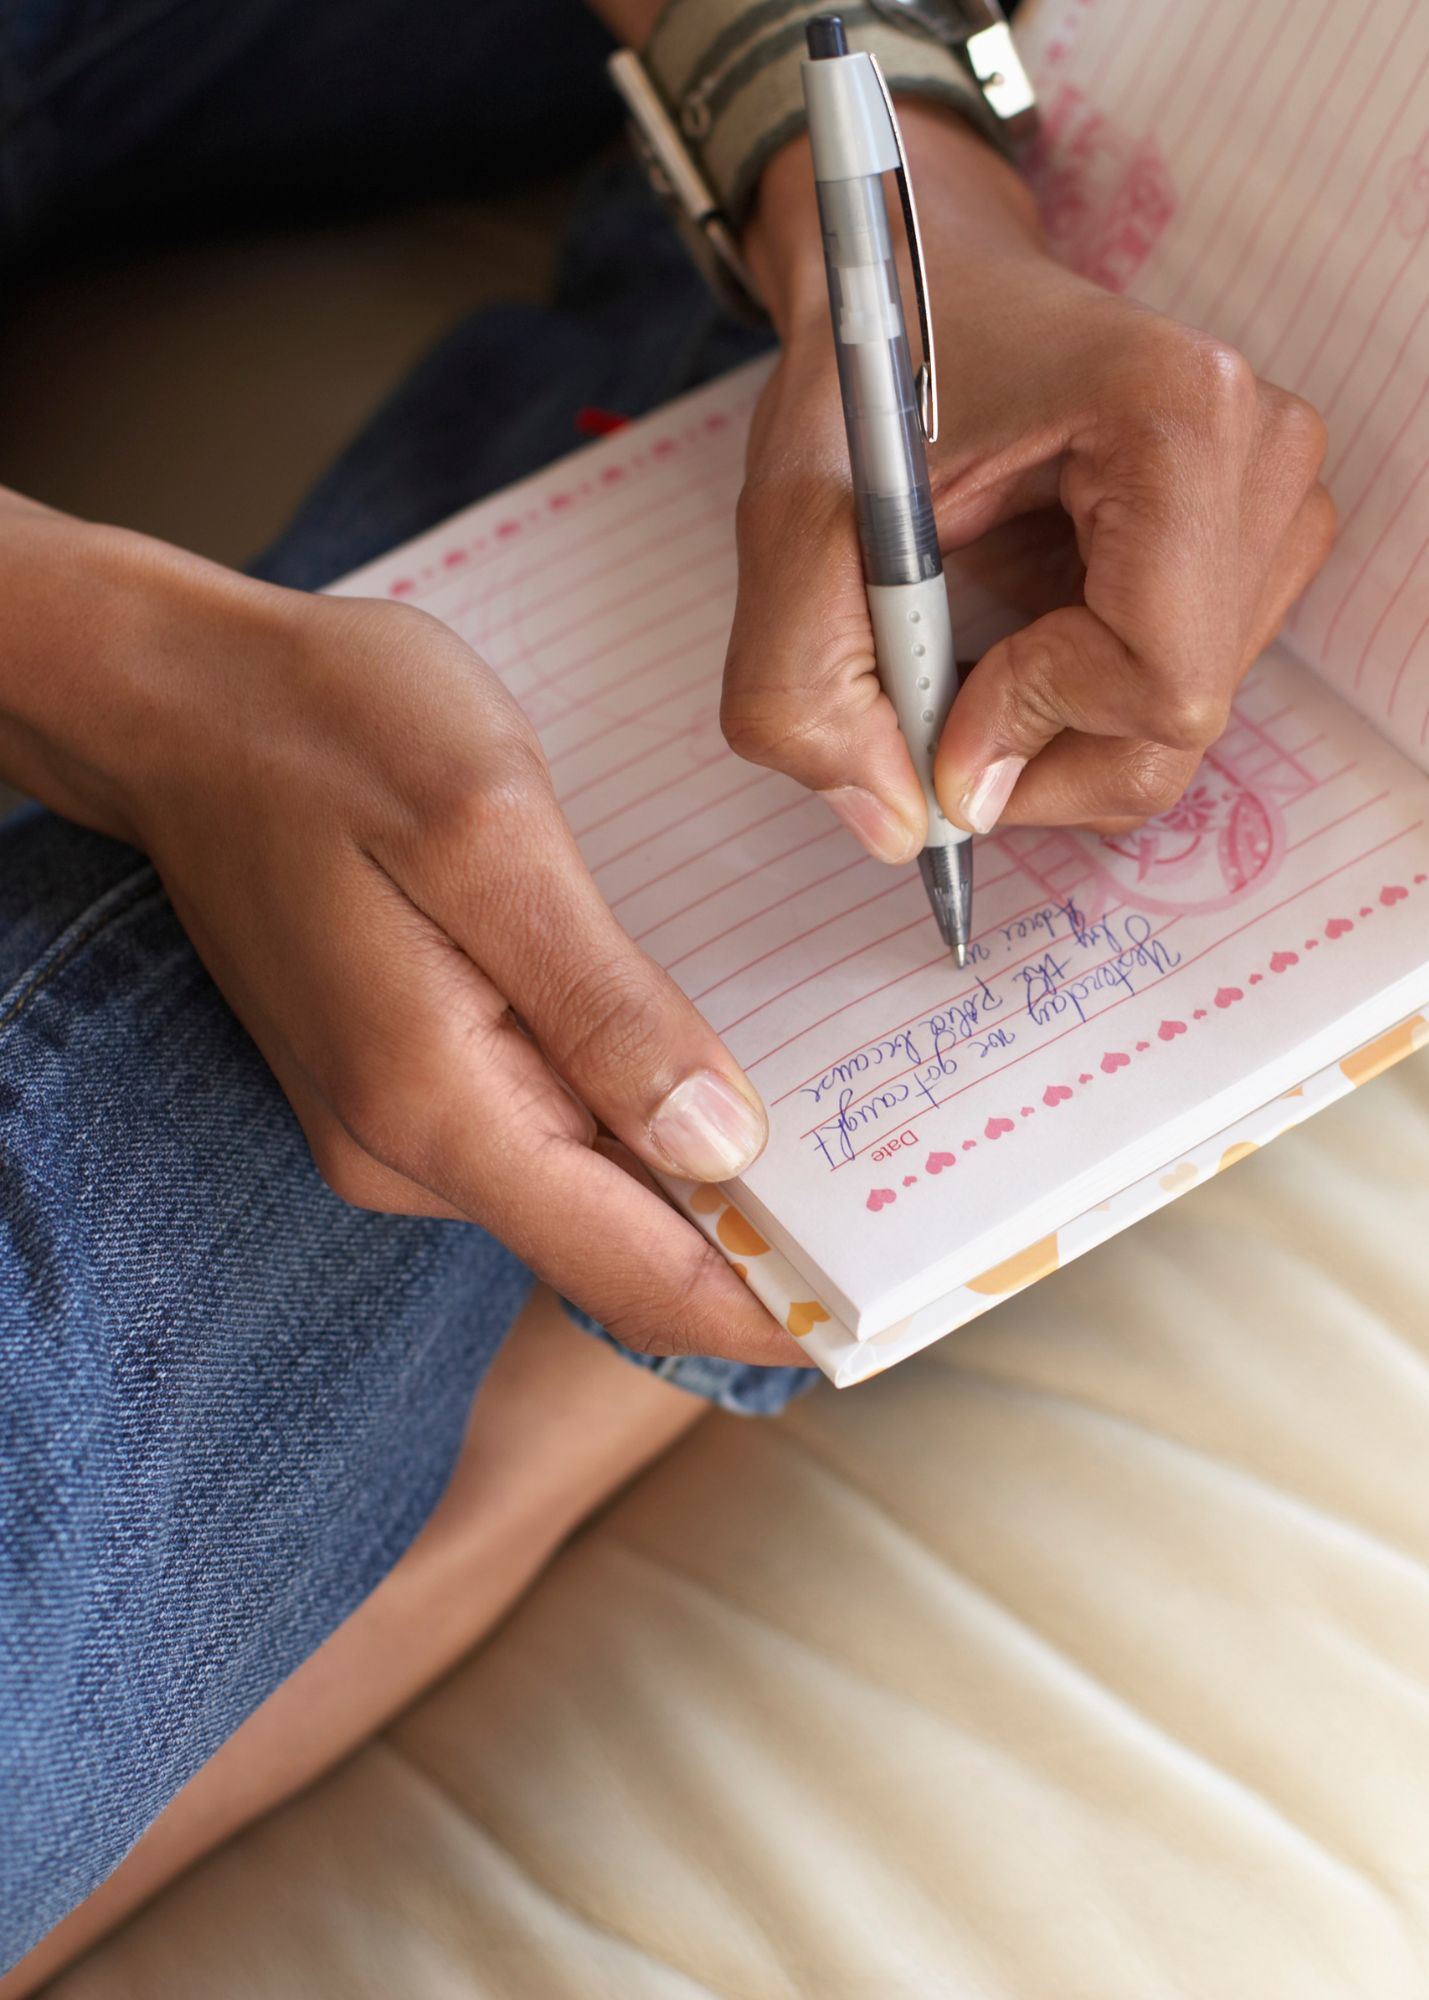 Date
Yesterday we got caught
by the police because